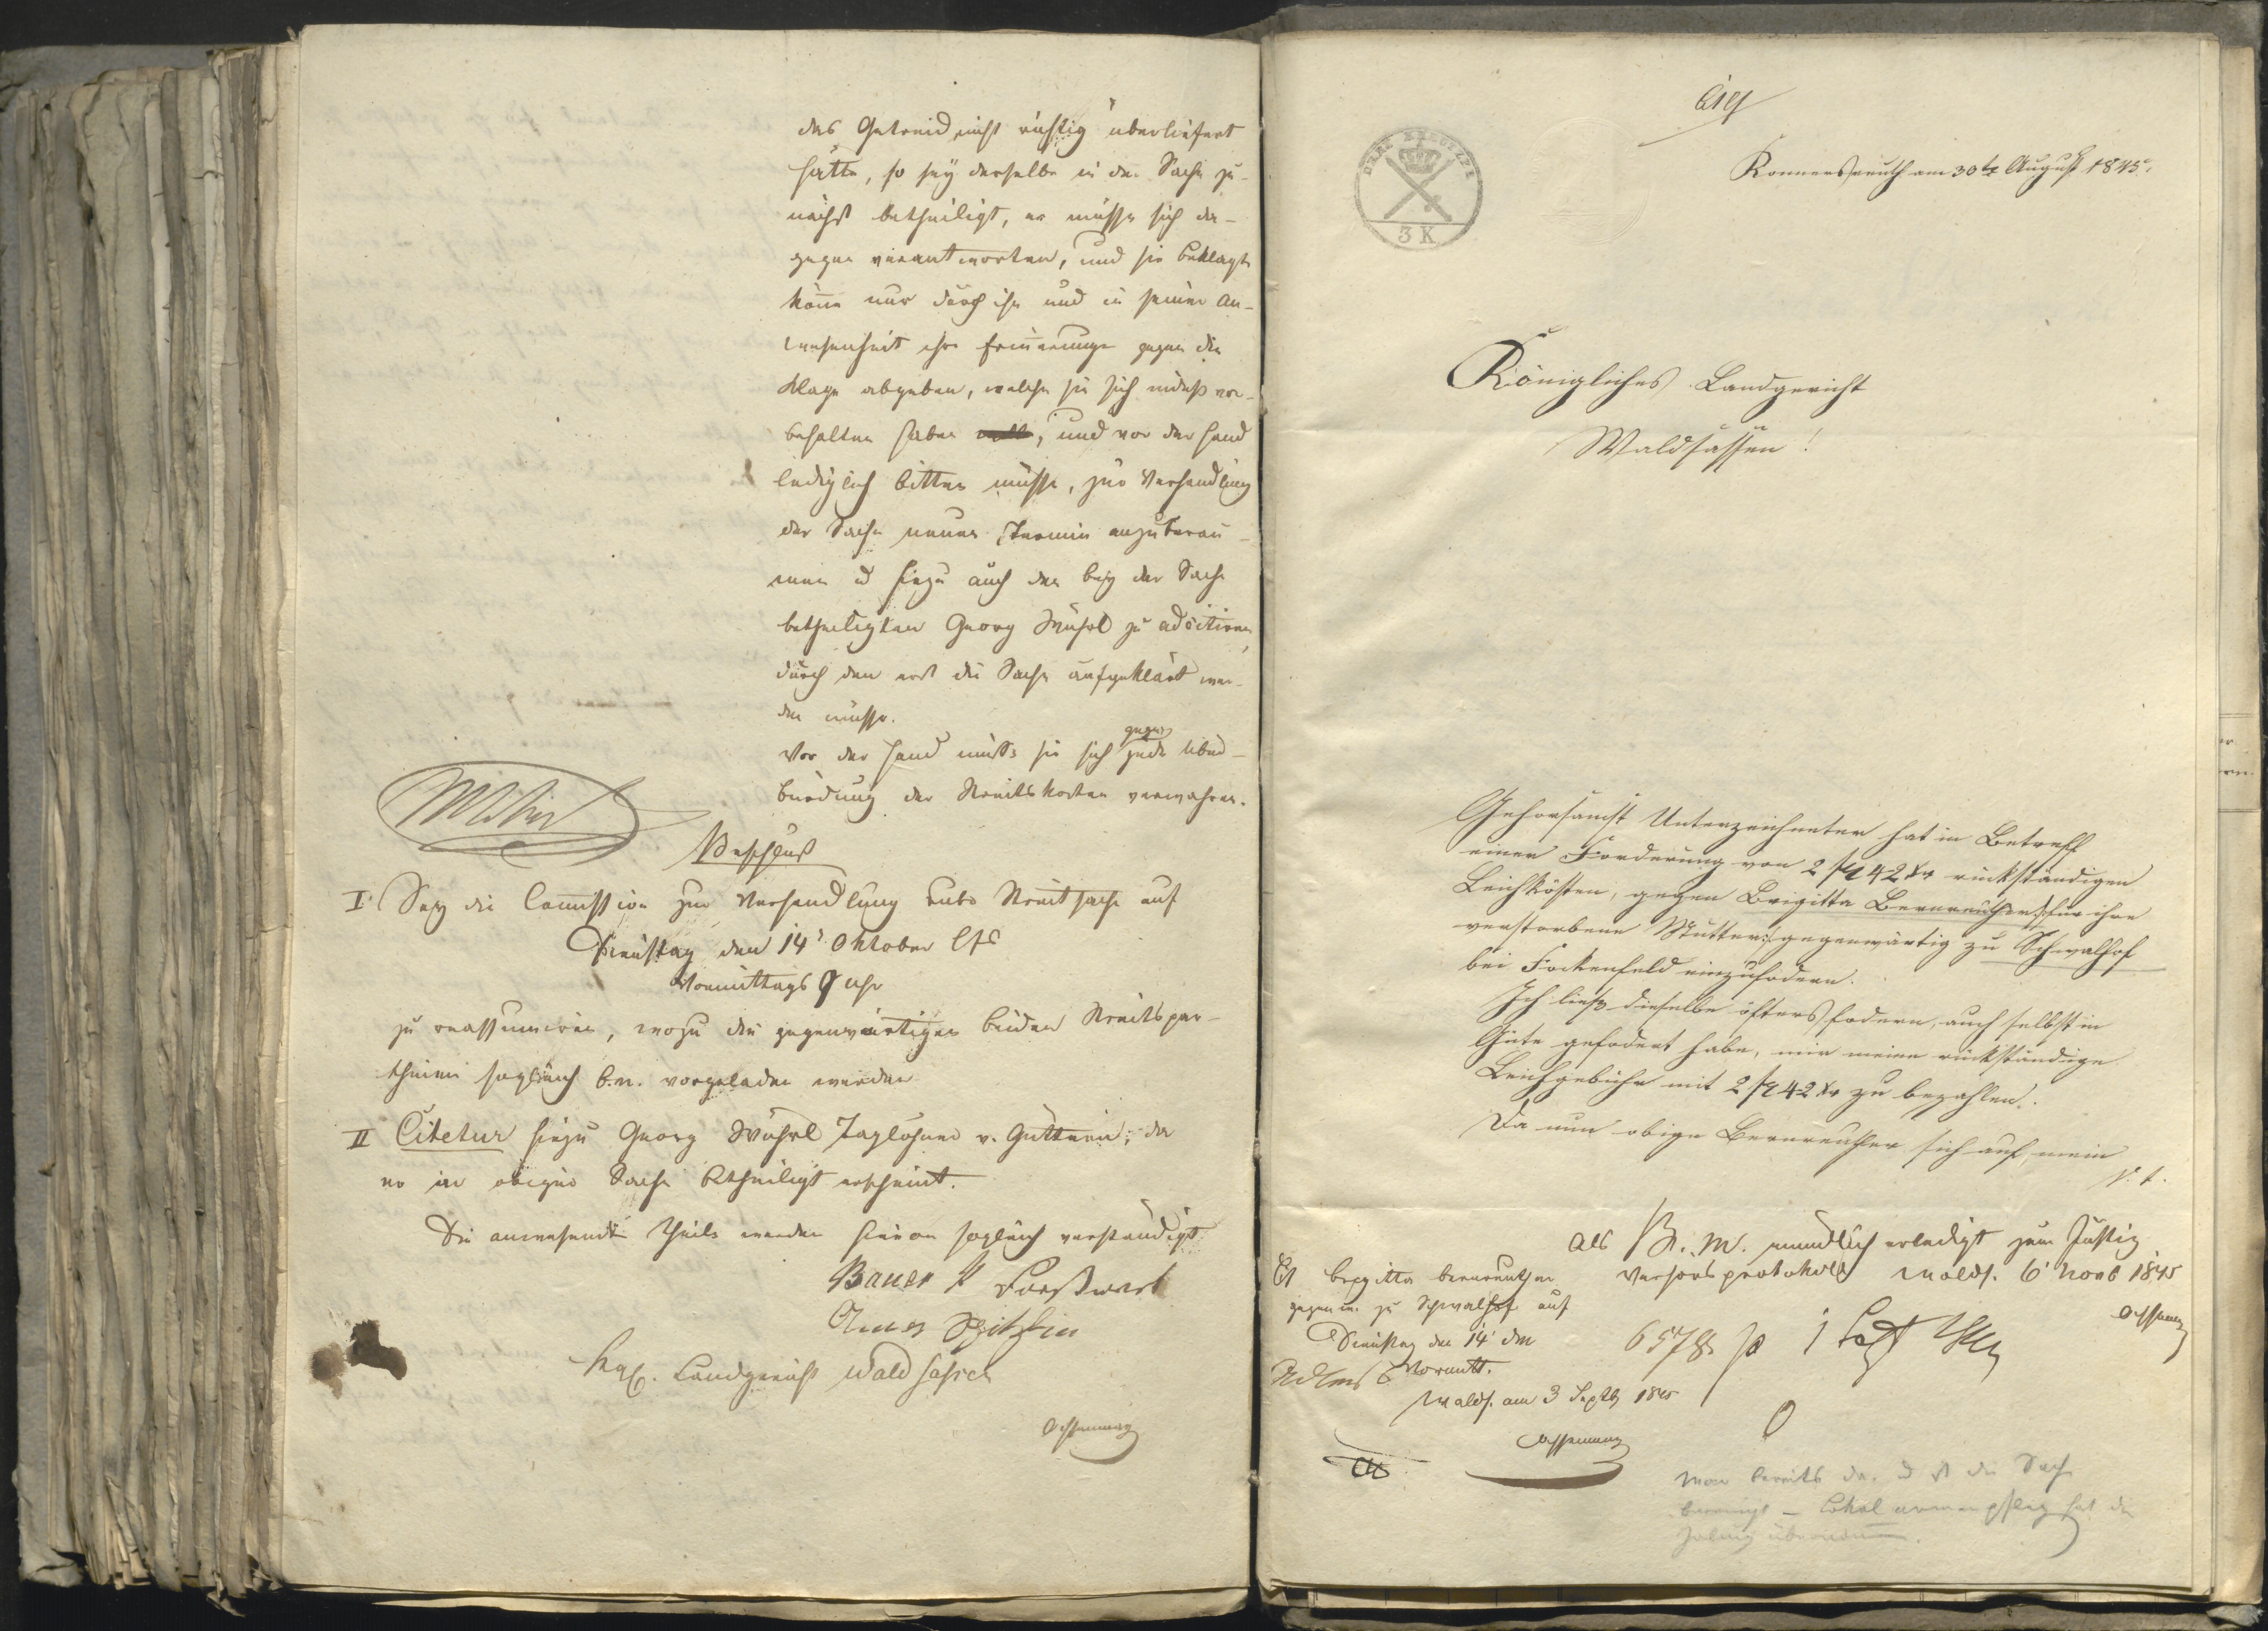 das Getreid nicht richtig überliefert
hätte, so sey derselbe in der Sache zu-
nächst betheiligt, er müsse sich da-
gegen verantworten, und sie Beklagte
könne nur durch ihn und in seiner An-
wesenheit ihre Erinnerungen gegen die
Klage abgeben, welche sie sich indeß vor-
behalten haben , und vor der Hand
lediglich bitten müsse, zur Verhandlung
der Sache neuen Termin anzuberau-
men u hiezu auch den bey der Sache
betheiligten Georg Wührl zu adcitiren,
durch den erst die Sache aufgeklärt wer-
den müsse.
gegen
Vor der Hand müsse sie sich jede Über-
bürdung der Streitskosten verwahren.
Beschluß
I Sey die Commission zur Verhandlung Streitsache auf
Dienstag den 14' Oktober lfs
Vormittags 9 Uhr
zu reassumiren, wozu die gegenwärtigen beiden Streitspar-
theien sogleich b.m. vorgeladen werden
II Citetur hiezu Georg Wührl Taglöhner v. , da
er in obiger Sache betheiligt erscheint.
Die anwesenden Theile werden hievon sogleich verständigt
Bauer
Spitzlin
Kgl. Landgericht Waldsassen
DREI KREUZER
3 K
Konnersreuth am 30te August 1845.
Königliches Landgericht
Waldsassen!
Gehorsamst Unterzeichneter hat in Betreff
einer Forderung von 2 fl 42 xr rückständigen
Leichkösten, gegen Brigitta Bernreuther für ihre
verstorbene Mutter gegenwärtig zu Schwalhof
bei Fockenfeld einzufodern.
Ich ließ dieselbe öfters fodern, auch selbst in
Güte gefodert habe, mir meine rückständige
Leichgebühr mit 2 fl 42 xr zu bezahlen.
Da nun obige Bernreuther sich auf mein
V. t.
Als B. M. mündlich erledigt zum Justiz
Verhörsprotokoll Walds. 6' Novb 1845
Ct Brigitta Bernreuther
gegenw. zu Schwalhof auf
Dienstag den 14' dm
Vormitt.
Walds. am 3 Septb 1845
6578
bereits da. u ist die Sache
– Lokalarmenpfleg hat die
Zalung übernommen.